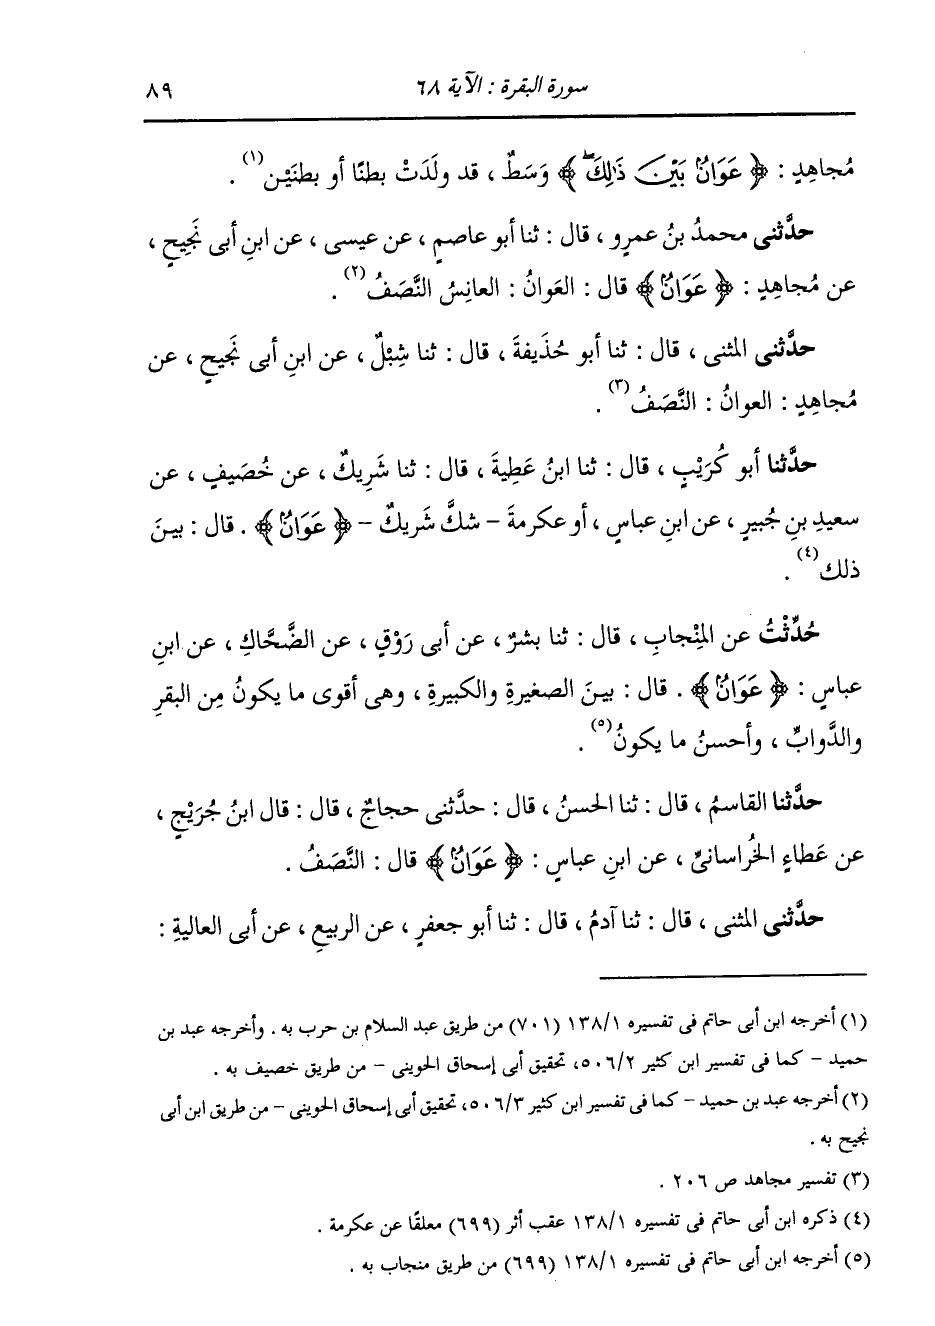 سورة البقرة : الآية ٦٨
٨٩
مُجاهِدٍ : ﴿ عَوَانٌ بَيْنَ ذَٰلِكَ ۖ ﴾ وَسَطٌ ، قد ولَدَتْ بطنًا أو بطنَيْن(١) .
حدَّثنى محمدُ بنُ عمرٍو ، قال : ثنا أبو عاصمٍ ، عن عيسى ، عن ابنِ أبى نَجيحٍ ،
عن مُجاهِدٍ : ﴿ عَوَانٌ ﴾ قال : العَوانُ : العانِسُ النَّصَفُ(٢) .
حدَّثنى المثنى ، قال : ثنا أبو حُذَيفةَ ، قال : ثنا شِبْلٌ ، عن ابنِ أبى نَجيحٍ ، عن
مُجاهِدٍ : العوانُ : النَّصَفُ(٣) .
حدَّثنا أبو كُرَيْبٍ ، قال : ثنا ابنُ عَطِيةَ ، قال : ثنا شَرِيكٌ ، عن خُصَيفٍ ، عن
سعيدِ بنِ جُبيرٍ ، عن ابنِ عباسٍ ، أو عكرمةَ - شكَّ شَريكٌ - ﴿ عَوَانٌ ﴾ . قال : بينَ
ذلك(٤) .
حُدِّثْتُ عن المِنْجابِ ، قال : ثنا بشرٌ ، عن أبى رَوْقٍ ، عن الضَّحَّاكِ ، عن ابنِ
عباسٍ : ﴿ عَوَانٌ ﴾ . قال : بينَ الصغيرةِ والكبيرةِ ، وهى أقوى ما يكونُ مِن البقرِ
والدَّوابِّ ، وأحسنُ ما يكونُ(٥) .
حدَّثنا القاسمُ ، قال : ثنا الحسنُ ، قال : حدَّثنى حجاجٌ ، قال : قال ابنُ جُرَيْجٍ ،
عن عَطاءٍ الخُراسانىِّ ، عن ابنِ عباسٍ : ﴿ عَوَانٌ ﴾ قال : النَّصَفُ .
حدَّثنى المثنى ، قال : ثنا آدمُ ، قال : ثنا أبو جعفرٍ ، عن الربيعِ ، عن أبى العاليةِ :
(١) أخرجه ابن أبى حاتم فى تفسيره ١٣٨/١ (٧٠١) من طريق عبد السلام بن حرب به . وأخرجه عبد بن
حميد - كما فى تفسير ابن كثير ٥٠٦/٢، تحقيق أبى إسحاق الحوينى - من طريق خصيف به .
(٢) أخرجه عبد بن حميد - كما فى تفسير ابن كثير ٥٠٦/٣، تحقيق أبى إسحاق الحوينى - من طريق ابن أبى
نجيح به .
(٣) تفسير مجاهد ص ٢٠٦ .
(٤) ذكره ابن أبى حاتم فى تفسيره ١٣٨/١ عقب أثر (٦٩٩) معلقا عن عكرمة .
(٥) أخرجه ابن أبى حاتم فى تفسيره ١٣٨/١ (٦٩٩) من طريق منجاب به .